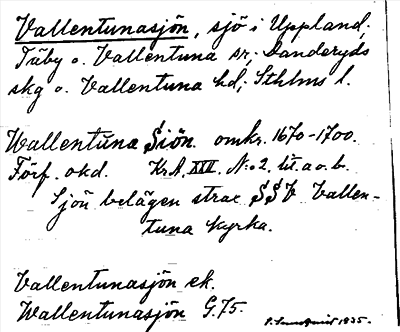 Vallentunasjön, sjö i Uppland;
Täby o. Vallentuna sr, Danderyds
skg o. Vallentuna hd; Sthlms l.
Wallentuna Siön. omkr. 1670-1700.
Förf. okd. KrA. XVII. N:o 2. lit. a o. b.
Sjön belägen strax SSV Vallen-
tuna kyrka.
Vallentunasjön ek.
Wallentunasjön G.75.
1935.